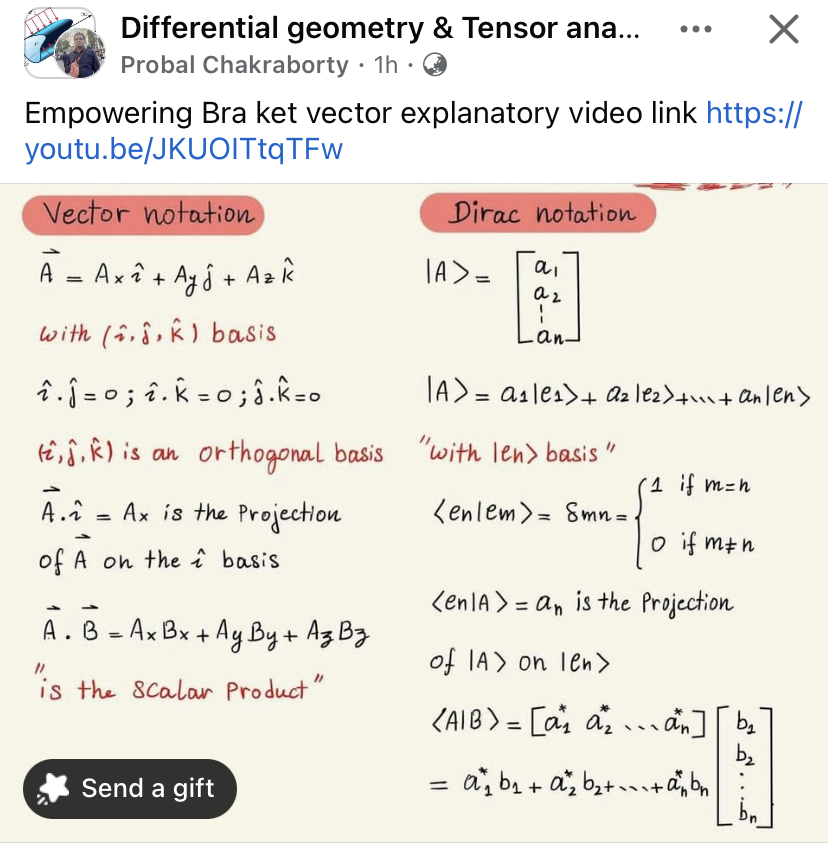 Differential geometry & Tensor ana...
Probal Chakraborty · 1h ·
Empowering Bra ket vector explanatory video link https://
youtu.be/JKUOITtqTFw
Vector notation
A⃗ = Axî + Ayĵ + Azk̂
with (î, ĵ, k̂) basis
î.ĵ = 0 ; î.k̂ = 0 ; ĵ.k̂ = 0
(î, ĵ, k̂) is an orthogonal basis
A⃗.î = Ax is the Projection
of A⃗ on the î basis
A⃗ . B⃗ = AxBx + AyBy + AzBz
"is the Scalar Product"
Dirac notation
|A> = [a1 a2 ⋮ an]
|A> = a1|e1> + a2|e2> + ... + an|en>
"with |en> basis"
<en|em> = δmn = { 1 if m=n
0 if m≠n
<en|A> = an is the Projection
of |A> on |en>
<A|B> = [a1* a2* ... an*] [b1 b2 ⋮ bn]
= a1* b1 + a2* b2 + ... + an* bn
Send a gift